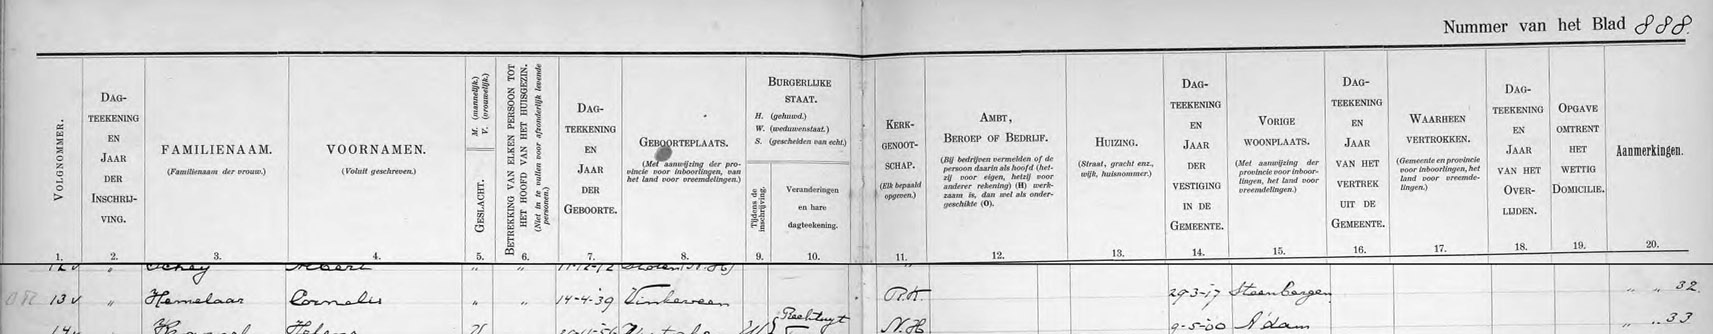 Nummer van het Blad 888.
VOLGNOMMER.
DAG-
TEEKENING
EN
JAAR
DER
INSCHRIJ-
VING.
FAMILIENAAM.
(Familienaam der vrouw.)
VOORNAMEN.
(Voluit geschreven.)
GESLACHT.
M. (mannelijk.)
V. (vrouwelijk.)
BETREKKING VAN ELKEN PERSOON TOT
HET HOOFD VAN HET HUISGEZIN.
(Niet in te vullen voor afzonderlijk levende
personen.)
DAG-
TEEKENING
EN
JAAR
DER
GEBOORTE.
GEBOORTEPLAATS.
(Met aanwijzing der pro-
vincie voor inboorlingen, van
het land voor vreemdelingen.)
BURGERLIJKE
STAAT.
H. (gehuwd.)
W. (weduwenstaat.)
S. (gescheiden van echt.)
Tijdens de
inschrijving.
Veranderingen
en hare
dagteekening.
KERK-
GENOOT-
SCHAP.
(Elk bepaald
opgeven.)
AMBT,
BEROEP OF BEDRIJF.
(Bij bedrijven vermelden of de
persoon daarin als hoofd (het-
zij voor eigen, hetzij voor
anderer rekening) (H) werk-
zaam is, dan wel als onder-
geschikte (O).
HUIZING.
(Straat, gracht enz.,
wijk, huisnommer.)
DAG-
TEEKENING
EN
JAAR
DER
VESTIGING
IN DE
GEMEENTE.
VORIGE
WOONPLAATS.
(Met aanwijzing der
provincie voor inboor-
lingen, het land voor
vreemdelingen.)
DAG-
TEEKENING
EN
JAAR
VAN HET
VERTREK
UIT DE
GEMEENTE.
WAARHEEN
VERTROKKEN.
(Gemeente en provincie
voor inboorlingen, het
land voor vreemde-
lingen.)
DAG-
TEEKENING
EN
JAAR
VAN HET
OVER-
LIJDEN.
OPGAVE
OMTRENT
HET
WETTIG
DOMICILIE.
Aanmerkingen.
1. 2. 3. 4. 5. 6. 7. 8. 9. 10. 11. 12. 13. 14. 15. 16. 17. 18. 19. 20.
12 v " Albert " " 11-12-12
13 v " Hemelaar Cornelis " " 14-4-'39 Vinkeveen R.K. 29-3-'17 Steenbergen " " 32.
14 v " Helena Rechtuyt N.H. 9-5-'00 A'dam " " 33